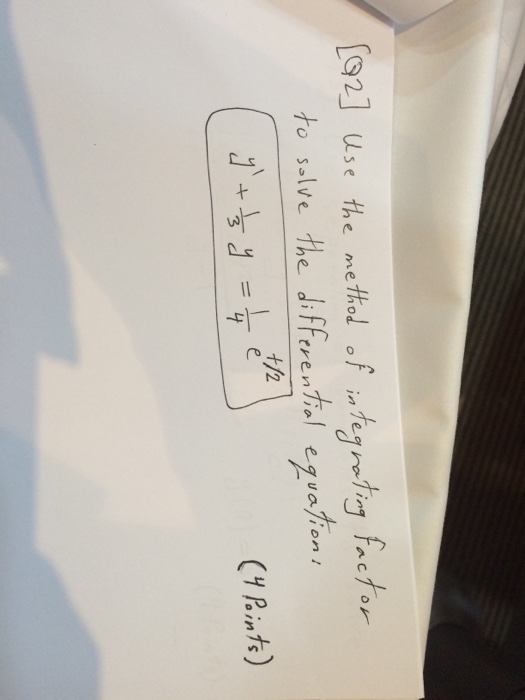 [Q2] Use the method of integrating factor
to solve the differential equation:
y' + 1/3 y = 1/4 e^t/2
(4 Points)